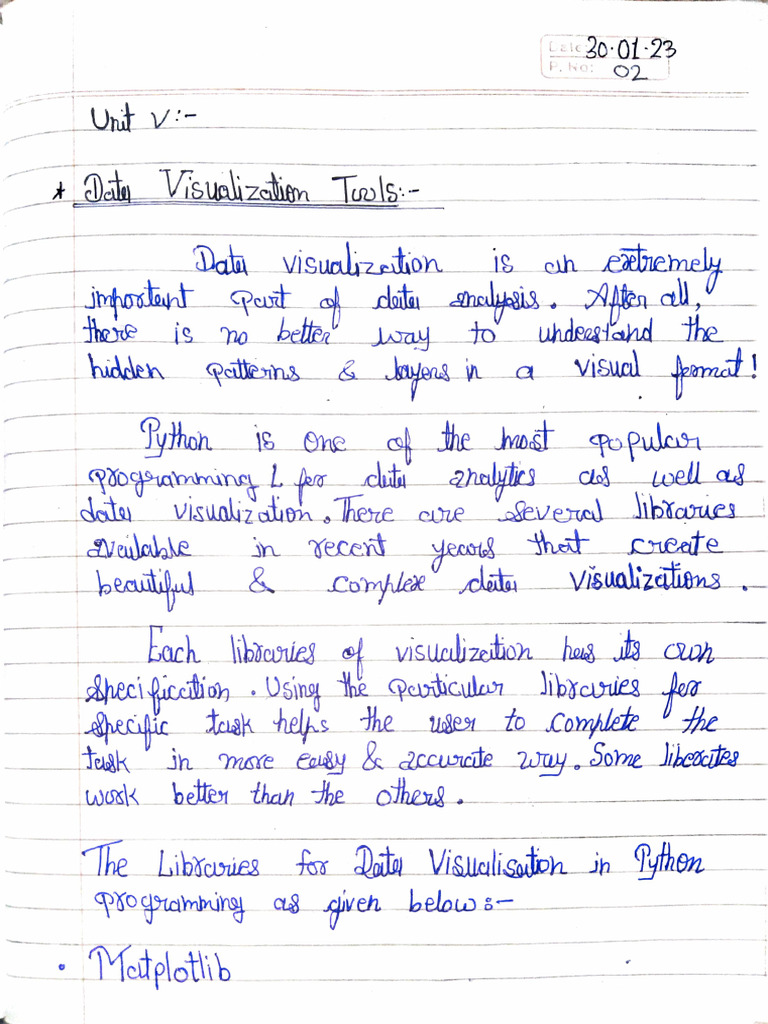 Date: 30.01.23
P. No: 02
Unit V:-
* Data Visualization Tools:-
Data visualization is an extremely
important part of data analysis. After all,
there is no better way to understand the
hidden patterns & layers in a visual format!
Python is one of the most popular
programming L for data analytics as well as
data visualization. There are several libraries
available in recent years that create
beautiful & complex data visualizations.
Each libraries of visualization has its own
specification. Using the particular libraries for
specific task helps the user to complete the
task in more easy & accurate way. Some liberates
work better than the others.
The Libraries for Data Visualisation in Python
programming as given below:-
• Matplotlib